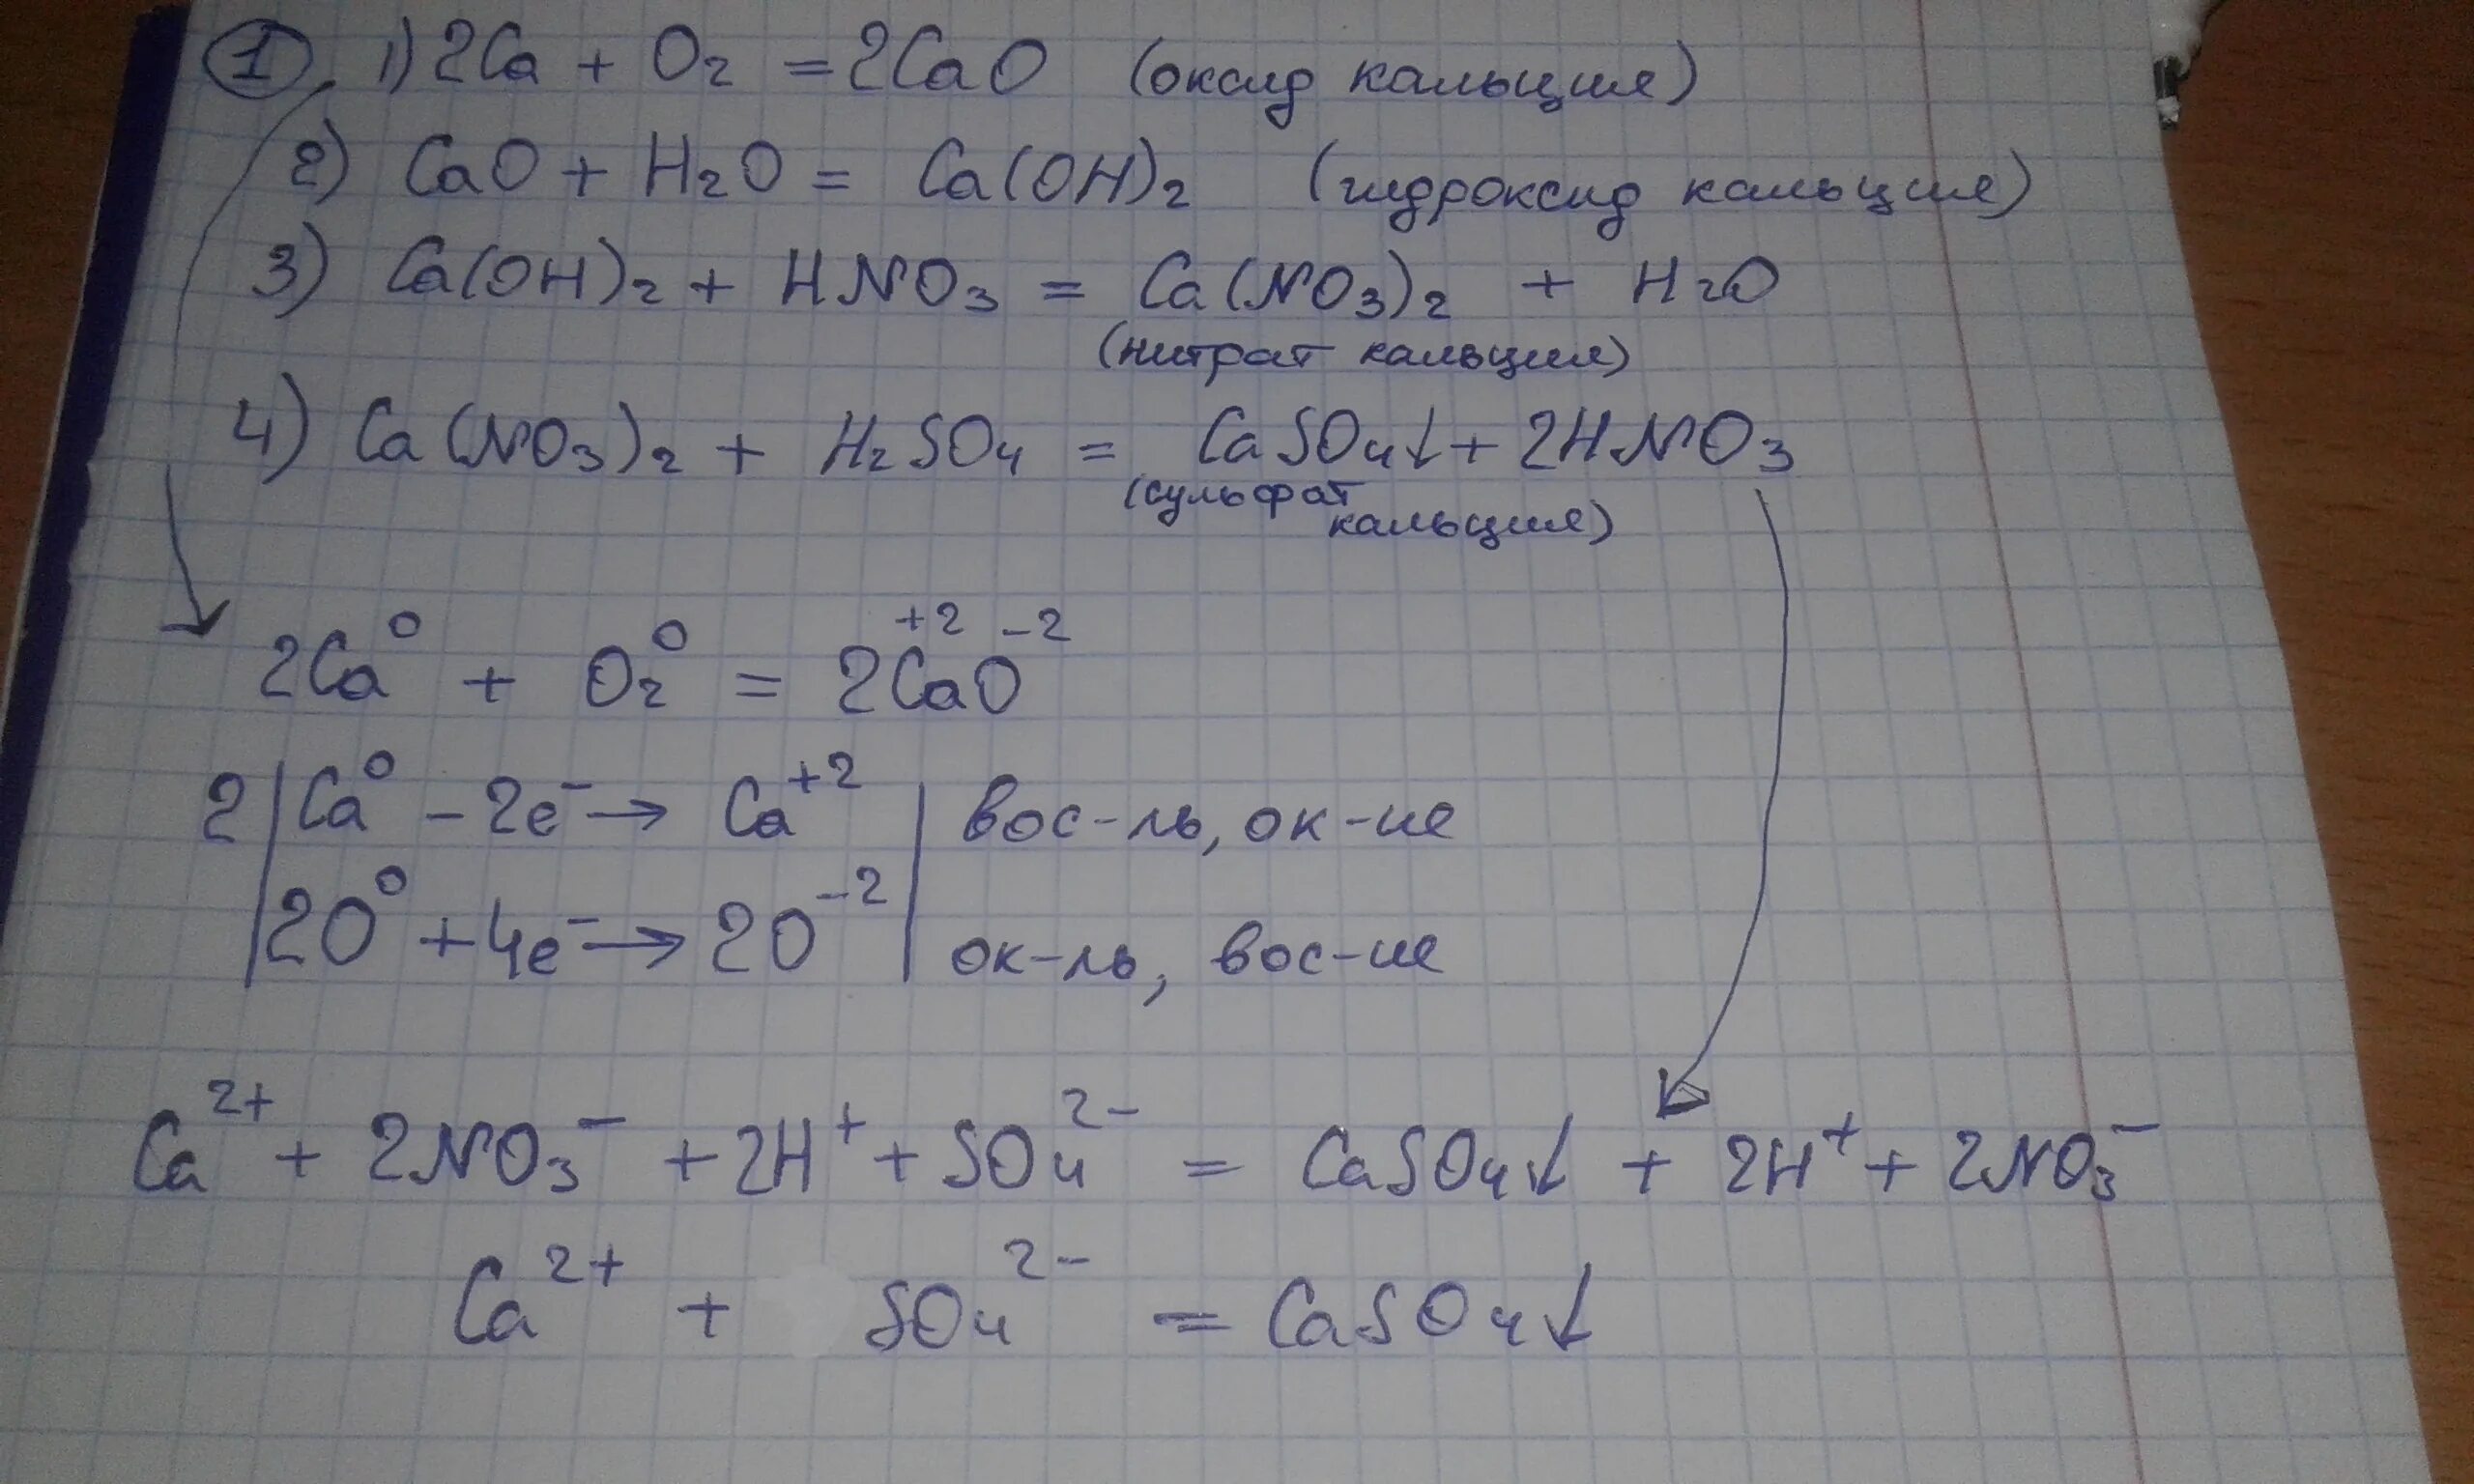 1. 1) 2Ca + O₂ = 2CaO (оксид кальция)
2) CaO + H₂O = Ca(OH)₂ (гидроксид кальция)
3) Ca(OH)₂ + HNO₃ = Ca(NO₃)₂ + H₂O
(нитрат кальция)
4) Ca(NO₃)₂ + H₂SO₄ = CaSO₄↓ + 2HNO₃
(сульфат
кальция)
2Ca⁰ + O₂⁰ = 2Ca⁺²O⁻²
2 | Ca⁰ – 2e⁻ → Ca⁺² | вос-ль, ок-ие
| 2O⁰ + 4e⁻ → 2O⁻² | ок-ль, вос-ие
Ca²⁺ + 2NO₃⁻ + 2H⁺ + SO₄²⁻ = CaSO₄↓ + 2H⁺ + 2NO₃⁻
Ca²⁺ + SO₄²⁻ = CaSO₄↓